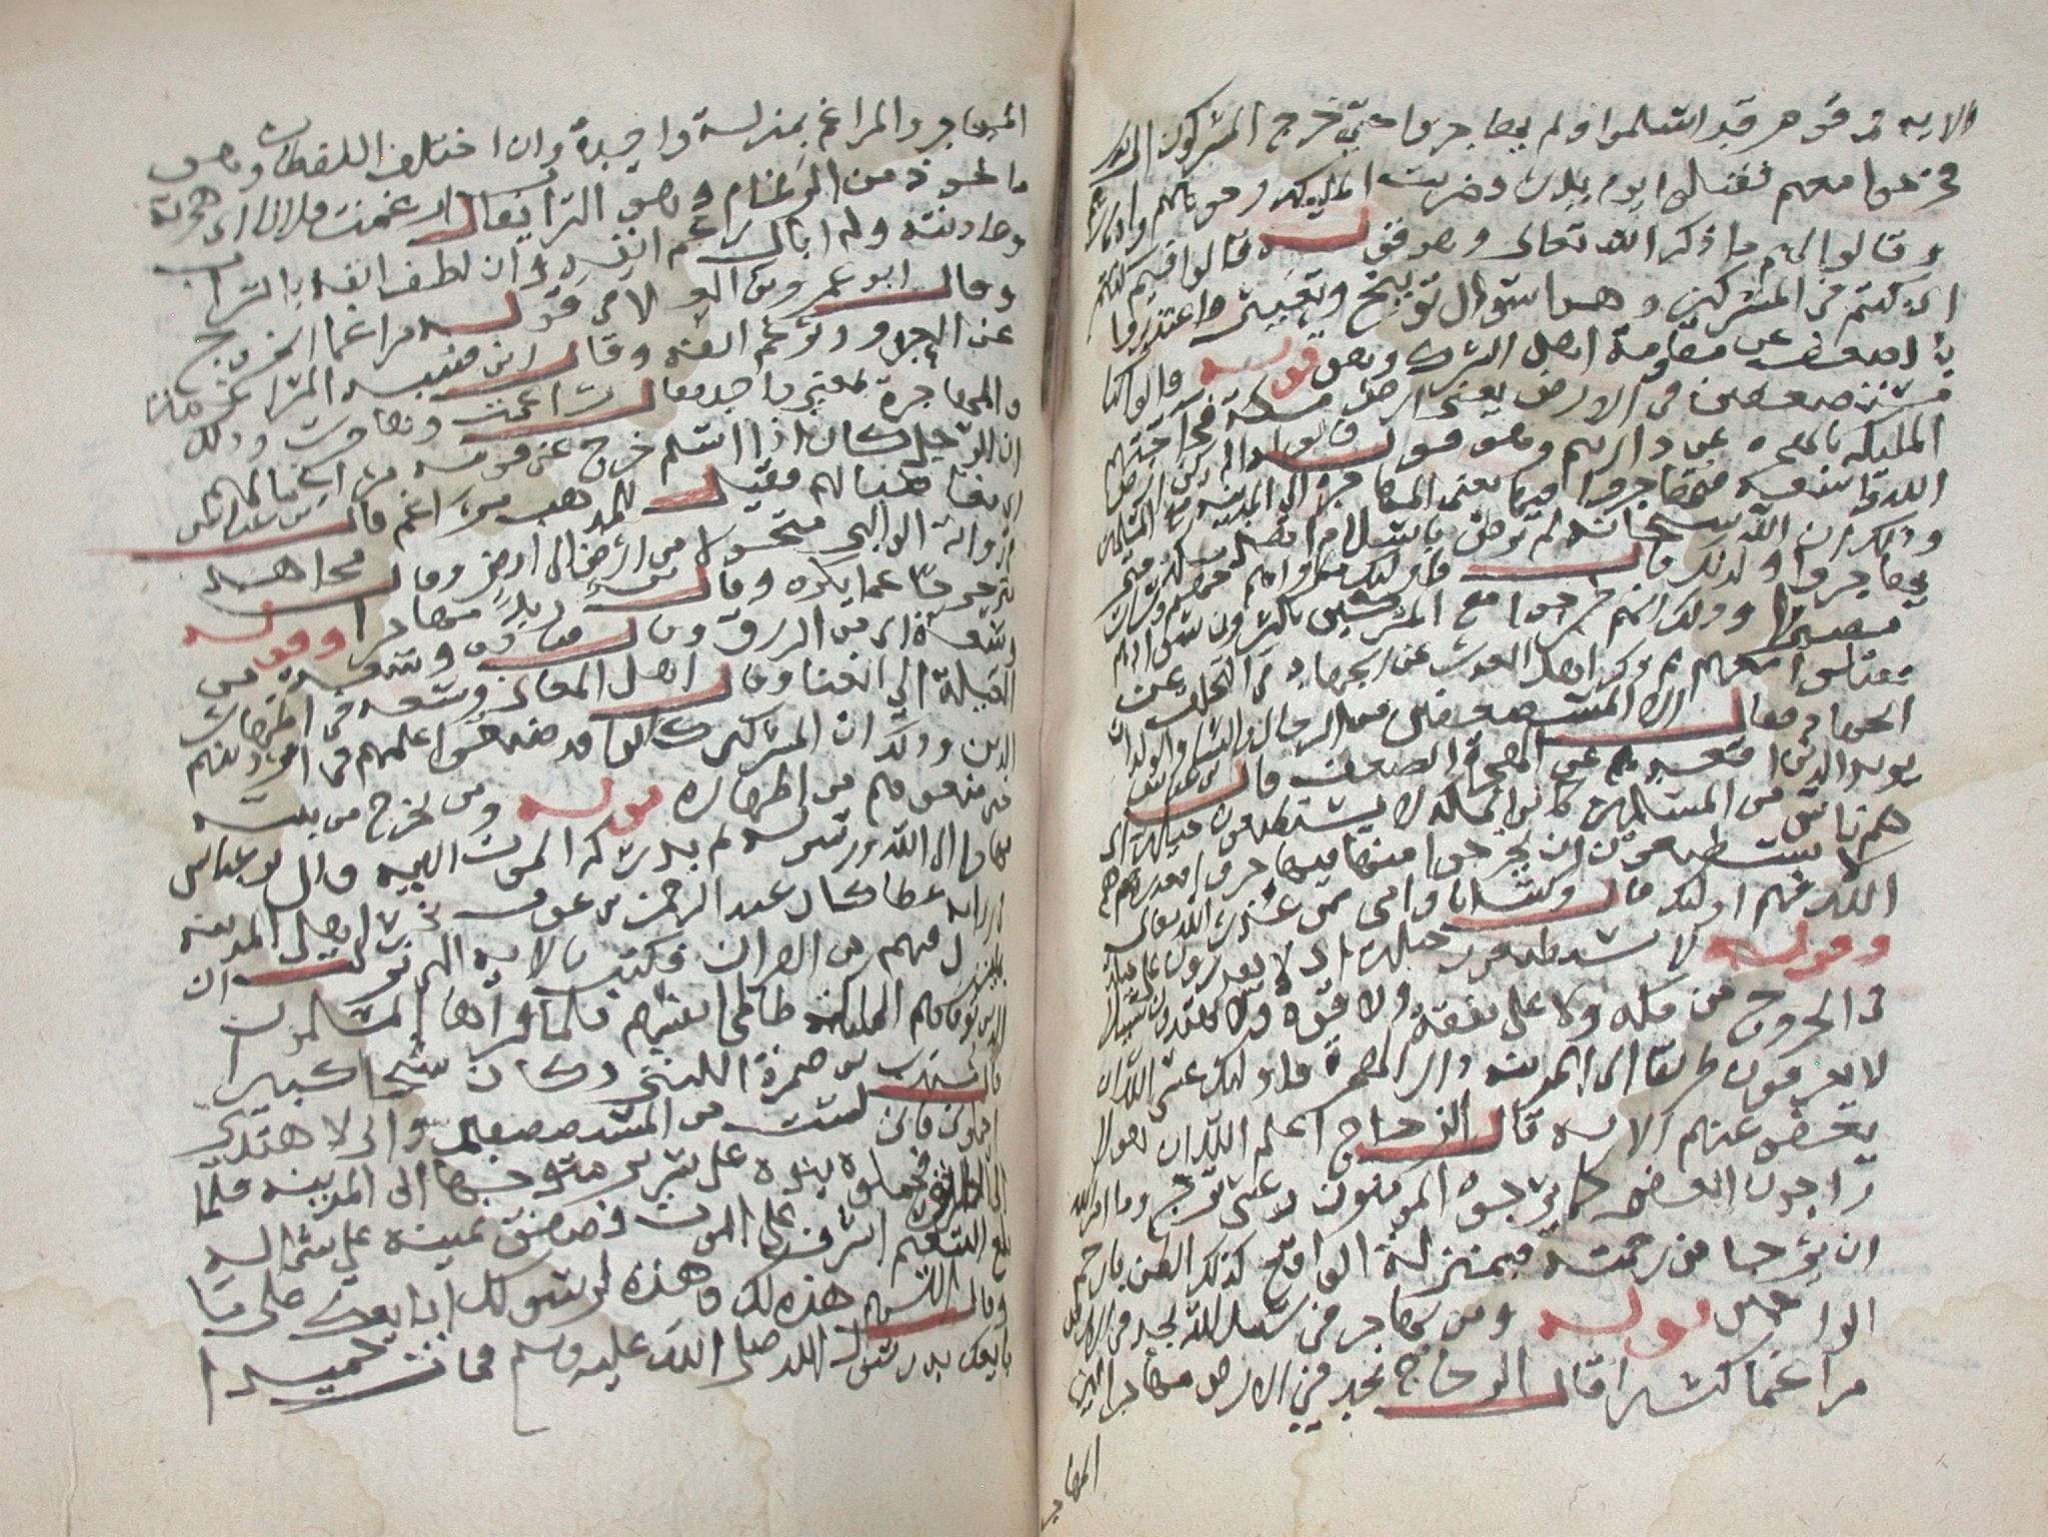 الايه في قوم قد اسلموا ولم يهاجروا حتى خرج المشركون الى بدر
فخرجوا معهم فقتلوا يوم بدر فضربت المليكه وجوههم وادبارهم
وقالوا لهم ما ذكر الله تعالى وهو قوله قالوا فيم كنتم
اي كنتم في المشركين وهو سوال توبيخ وتعيير فاعتذروا
بالضعف عن مقاومة اهل الشرك وهو قوله قالوا كنا
مستضعفين في الارض يعني ارض مكة فحاجتهم
المليكه بالهجره عن دارهم وهو قوله قالوا الم تكن ارض
الله واسعه فتهاجروا فيها يعني المهاجرة الى المدينه
وذلك ان الله سبحانه لم يرض باسلام اهل مكة حتى
يهاجروا ولذلك قال فاوليك ماواهم جهنم وساءت
مصيرا وذلك انهم خرجوا مع المشركين
فقتلوا معهم ثم ذكر اهل العذر عن الجهاد في التخلف عن
الجهاد فقال الا المستضعفين من الرجال والنساء والولدان
يريد الذين اقعدهم عن الهجرة الضعف قال ابن عباس
هم ناس من المسلمين كانوا بمكه لا يستطيعون حيلة اي
لا يستطيعون ان يخرجوا منها فيهاجروا فعذرهم
الله فهم اوليك قال وكنت انا وامي ممن عذر الله تعالى
وقوله لا يستطيعون حيلة اي لا يقدرون على حيلة
في الخروج من مكه ولا على نفقة ولا قوة ولا يهتدون سبيلا
لا يعرفون طريقا الى المدينه دار الهجرة فاوليك عسى الله ان
يعفو عنهم الايه قال الزجاج اعلم الله ان هولا
راجون العفو كما يرجوه المومنون وعسى ترج وما امر الله
ان يرجا من رحمته فبمنزلة الواقع كذلك الظن بارحم
الراحمين قوله ومن يهاجر في سبيل الله يجد في الارض
مراغما كثيرا قال الزجاج يجد في الارض مهاجرا لان
المهاجر
المهاجر والمراغم بمنزلة واحدة وان اختلف اللفظان وهو
ماخوذ من الرغام وهو التراب يقال راغمت فلانا اي هجرته
وعاديته ولم ابال رغم انفه وان لصق انفه بالتراب
وقال ابو عمرو بن العلاء في قوله مراغما الخروج
عن العدو وبرغم انفه وقال ابن قتيبه المراغم
والمهاجرة معنى واحد يقال راغمت وهاجرت وذلك
ان الرجل كان اذا اسلم خرج عن قومه مراغما لهم اي
مغايظا لهم فقيل للمذهب مراغم قال ابن عباس في
رواية الوالبي متحولا من ارض الى ارض وقال مجاهد
متزحزحا عما يكره وقال مهاجرا وقوله
وسعة اي من الرزق وقال قتادة وسعة من
العيلة الى الغنا وقال اهل المعاني وسعه في اظهار
الدين وذلك ان المشركين كانوا قد ضيقوا عليهم في امر دينهم
حتى منعوهم من اظهاره قوله ومن يخرج من بيته
مهاجرا الى الله ورسوله ثم يدركه الموت الايه قال ابن عباس
في رواية عطا كان عبد الرحمن بن عوف يخبر اهل المدينه
بما ينزل فيهم من القران فكتب بالايه التي نزلت ان
الذين توفاهم المليكه ظالمي انفسهم فلما قراها المسلمون
قال جندب بن ضمرة الليثي وكان شيخا كبيرا
احملوني فاني لست من المستضعفين واني لاهتدي
الى الطريق فحمله بنوه على سرير متوجها الى المدينه فلما
بلغ التنعيم اشرف على الموت فصفق يمينه على شماله
وقال اللهم هذه لك وهذه لرسولك ابايعك على ما
بايعك يد رسول الله صلى الله عليه وسلم فمات حميدا